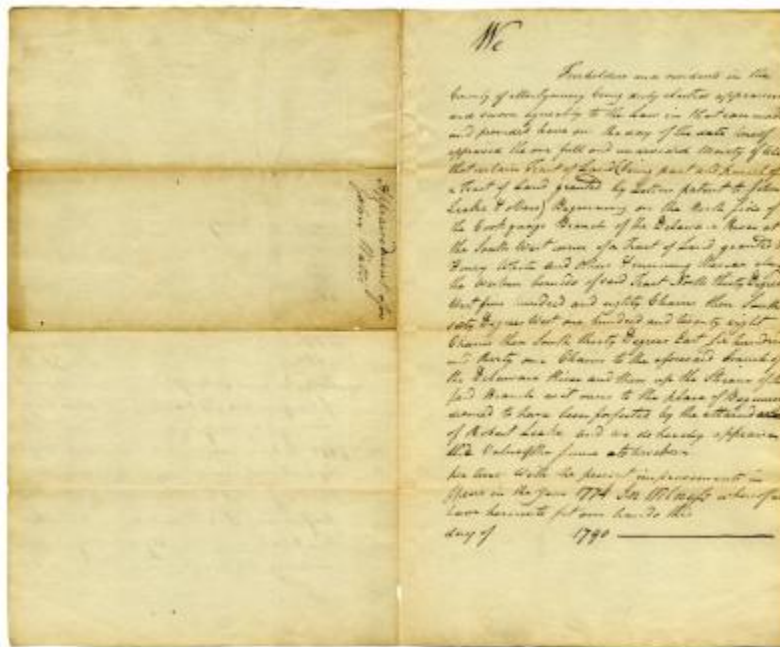 We
Freeholders and residents in the
County of Montgomery being duly elected appraisers
and sworn agreeably to the Law in that case made
and provided have on the day of the date hereof
appraised the one full and undivided Moiety of all
that certain Tract of Land (being part and parcel of
a Tract of Land granted by Letters patent to John
Leake & others) Beginning on the North side of
the Cookquago Branch of the Delaware River at
the South West corner of a Tract of Land granted to
Henry White and others & running thence along
the western bounds of said Tract North thirty Degrees
West five hundred and eighty Chains then South
sixty Degrees West one hundred and twenty eight
Chains then South thirty Degrees East six hundred
and thirty one Chains to the aforesaid branch of
the Delaware River and then up the Stream of the
said Branch as it runs to the place of Beginning
deemed to have been forfeited by the attainder
of Robert Leake and we do hereby appraise
the Value of the same at
per Acre with the present improvements in
in the Year 1774 In Witness whereof we
have hereunto set our hands this
day of 1790
Appraisement for
John Watts